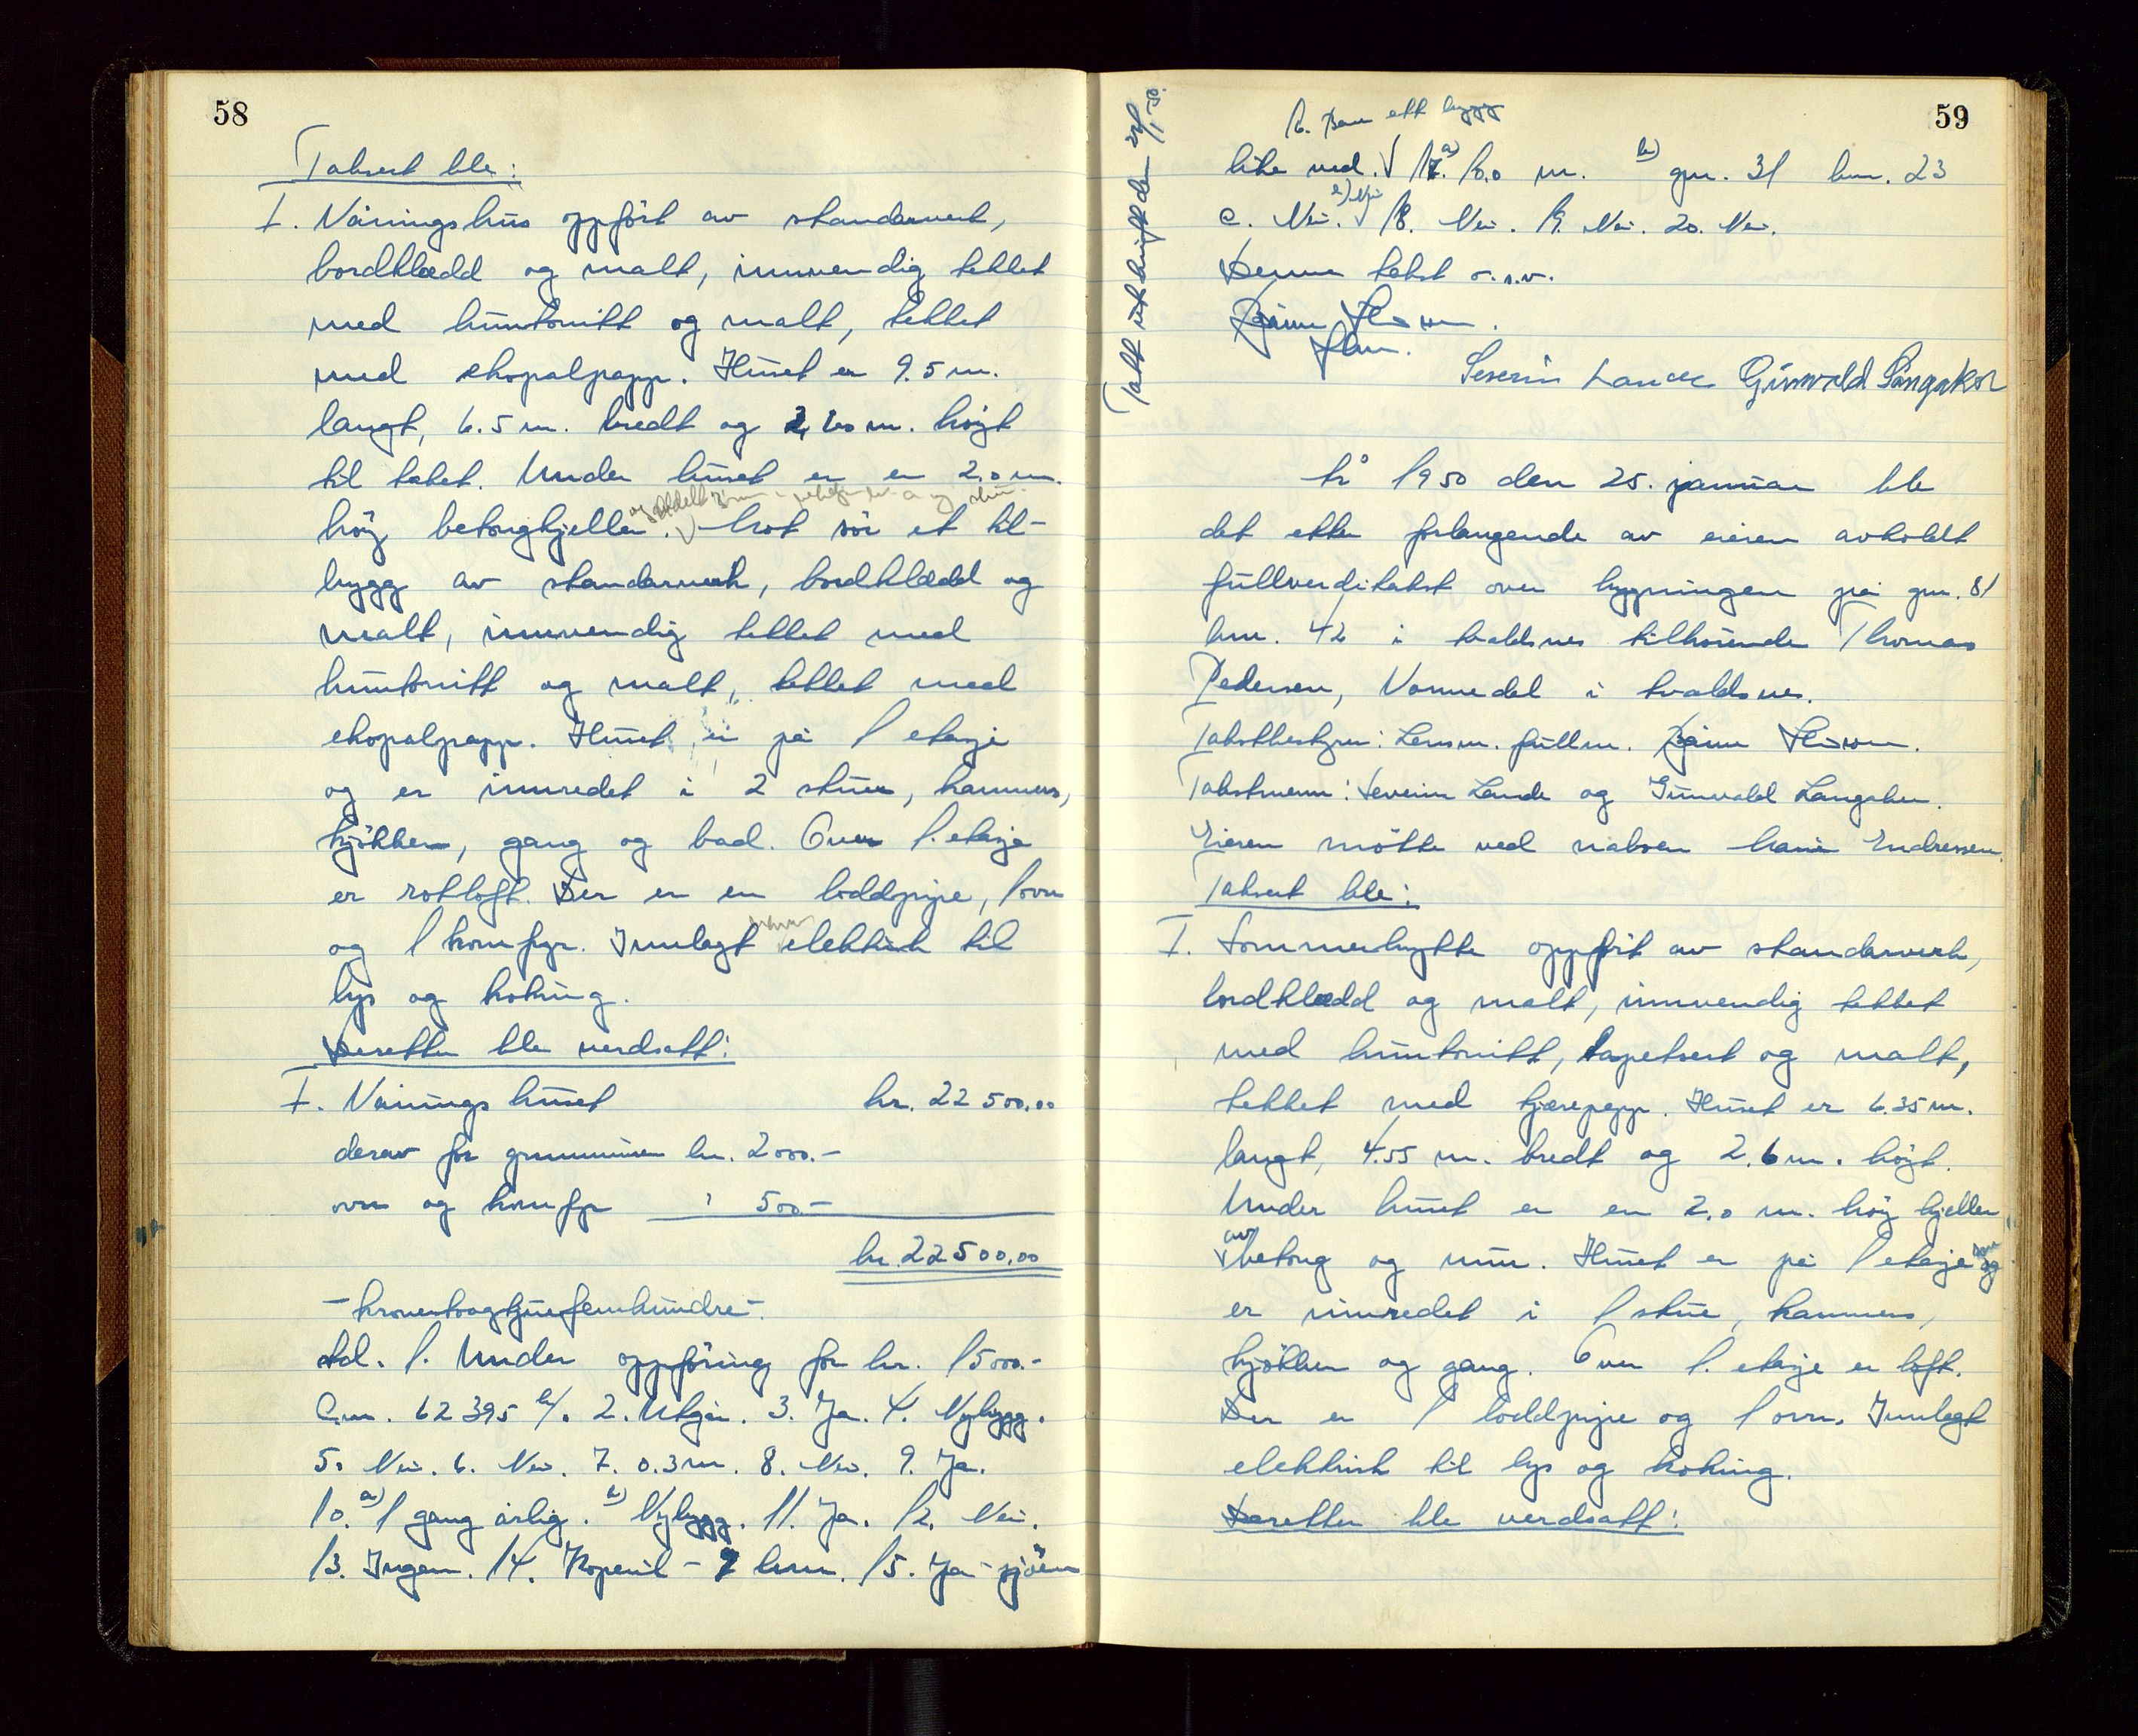 58
Taksert ble:
I. Våningshus oppført av standerverk,
bordklædd og malt, innvendig tekket
med huntonitt og malt, tekket
med ekopalpapp. Huset er 9.5 m.
langt, 6.5 m. bredt og m. høyt
til taket. Under huset er en 2.0 m.
høy betongkjeller. Mot sör et til-
bygg av standerverk, bordklædd og
malt, innvendig tekket med
huntonitt og malt, tekket med
ekopalpapp. Huset er på 1 etasje
og er innredet i 2 stuer, kammers,
kjökken, gang og bad. Over 1. etasje
er rotloft. Der er en loddpipe, 1 ovn
og 1 komfyr. Innlagt elektrisk til
lys og koking.
Deretter ble verdsatt:
I. Våningshuset kr. 22500.00
derav for grunnmuren kr. 2000.-
ovn og komfyr " 500.-
kr. 22500.00
- kronertoogtjuefemhundre -
Ad. 1. Under oppföring for kr. 15000.-
62395 2. Utgår. 3. Ja. 4. Nybygg.
5. Nei. 6. Nei. 7. 0.3 m. 8. Nei. 9. Ja.
10. a) 1 gang årlig. b) Nybygg. 11. Ja. 12. Nei.
13. Ingen. 14. Kopervik - 7 km. 15. Ja - sjöen
59
Tatt utskrift den
16. Bare ett bygg
like ved. 17. a) 10.0 m. b) gnr. 31 bnr. 23
c. Nei. 18. Nei. 19. Nei. 20. Nei.
Denne takst o.s.v.
Severin Lande Gunvald Langaker
År 1950 den 25. januar ble
det etter forlangende av eieren avholdt
fullverditakst over bygningen på gnr. 81
bnr. 42 i Avaldsnes tilhörende Thomas
Pedersen, Vormedal i Avaldsnes.
Takstbestyrer: Lensm. fullm. Bjarne
Takstmenn: Severin Lande og Gunvald Langaker.
Eieren møtte ved naboen Endressen.
Taksert ble:
I. Sommerhytte oppfört av standerverk,
bordklædd og malt, innvendig tekket
med huntonitt, tapetsert og malt,
tekket med tjærepapp. Huset er 6.35 m.
langt, 4.55 m. bredt og 2.6 m. höyt.
Under huset er en 2.0 m. höy kjeller,
av betong og mur. Huset er på 1 etasje og
er innredet i 1 stue, kammers,
kjökken og gang. Over 1. etasje er loft.
Der er 1 loddpipe og 1 ovn. Innlagt
elektrisk til lys og koking.
Deretter ble verdsatt: